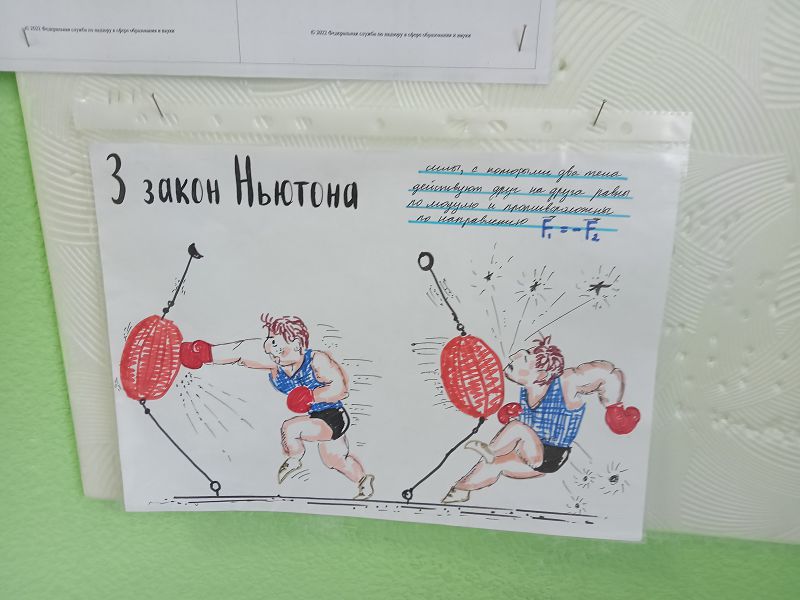 © 2022 Федеральная служба по надзору в сфере образования и науки
© 2022 Федеральная служба по надзору в сфере образования и науки
3 закон Ньютона
силы, с которыми два тела
действуют друг на друга равны
по модулю и противоположны
по направлению
F₁ = -F₂